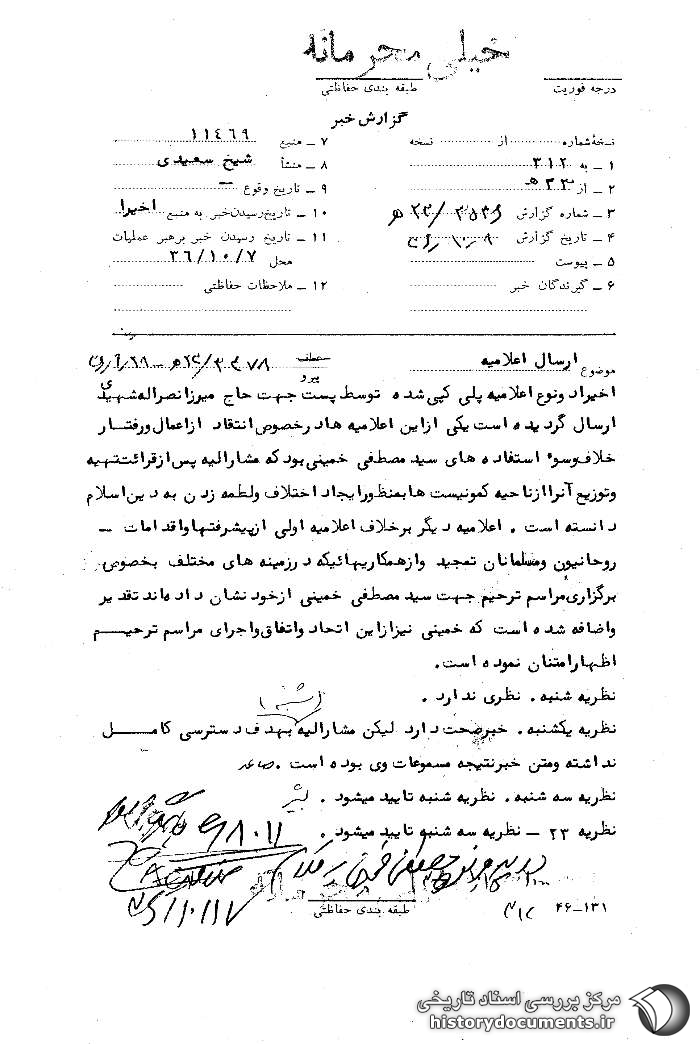 خیلی محرمانه
درجه فوریت
طبقه بندی حفاظتی
گزارش خبر
نسخهٔ شماره از نسخه
۱ ـ به ۳۱۲
۲ ـ از ۲۳ ه‍
۳ ـ شماره گزارش
۴ ـ تاریخ گزارش
۵ ـ پیوست
۶ ـ گیرندگان خبر
۷ ـ منبع ۱۱۴۶۹
۸ ـ منشأ شیخ سعیدی
۹ ـ تاریخ وقوع ـ
۱۰ ـ تاریخ رسیدن خبر به منبع اخیرا
۱۱ ـ تاریخ رسیدن خبر برهبر عملیات
محل ۳۶/۱۰/۷
۱۲ ـ ملاحظات حفاظتی
موضوع ارسال اعلامیه
عطف
پیرو
اخیرا دو نوع اعلامیه پلی کپی شده توسط پست جهت حاج میرزا نصراله شهیدی
ارسال گردیده است یکی از این اعلامیه ها در خصوص انتقاد از اعمال و رفتار
خلاف و سوء استفاده های سید مصطفی خمینی بود که مشارالیه پس از قرائت تهیه
و توزیع آنرا از ناحیه کمونیست ها بمنظور ایجاد اختلاف و لطمه زدن به دین اسلام
دانسته است . اعلامیه دیگر برخلاف اعلامیه اولی از پیشرفتها و اقدامات ـ
روحانیون و مسلمانان تمجید و از همکاریهائیکه در زمینه های مختلف بخصوص
برگزاری مراسم ترحیم جهت سید مصطفی خمینی از خود نشان داده اند تقدیر
و اضافه شده است که خمینی نیز از این اتحاد و اتفاق و اجرای مراسم ترحیم
اظهار امتنان نموده است.
نظریه شنبه . نظری ندارد .
نظریه یکشنبه . خبر صحت دارد لیکن مشارالیه بهدف دسترسی کامل
نداشته و متن خبر نتیجه مسموعات وی بوده است . صاعد
نظریه سه شنبه . نظریه شنبه تایید میشود .
نظریه ۲۳ ـ نظریه سه شنبه تایید میشود .
طبقه بندی حفاظتی
۴۶-۱۳۱
مرکز بررسی اسناد تاریخی
historydocuments.ir